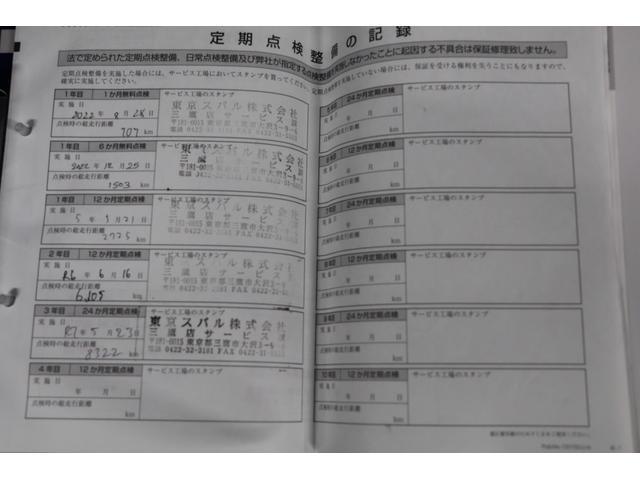 定期点検整備の記録
法で定められた定期点検整備、日常点検整備及び弊社が指定する点検整備を実施しなかったことに起因する不具合は保証修理致しません。
定期点検整備を実施した場合には、サービス工場においてスタンプを貰ってください。定期点検整備を実施していない場合には、保証を受ける権利を失うことにもなりますので、
確実に実施してください。
1年目 1か月無料点検 サービス工場のスタンプ
実施日
2022年8月28日
点検時の総走行距離
707 km
東京スバル株式会社
三鷹店サービス課
〒181-0015 東京都三鷹市大沢3-9-6
電話 0422-32-3181 FAX 0422-31-
1年目 6か月無料点検 サービス工場のスタンプ
実施日
2022年12月25日
点検時の総走行距離
1503 km
東京スバル株式会社
三鷹店サービス課
〒181-0015 東京都三鷹市大沢3-9-6
電話 0422-32-3181 FAX 0422-31-
1年目 12か月定期点検 サービス工場のスタンプ
実施日
5年 月21日
点検時の総走行距離
2725 km
東京スバル株式会社
三鷹店サービス課
〒181-0015 東京都三鷹市大沢3-9-6
電話 0422-32-3181 FAX 0422-31-
2年目 12か月定期点検 サービス工場のスタンプ
実施日
R6年6月16日
点検時の総走行距離
km
東京スバル株式会社
三鷹店サービス
〒181-0015 東京都三鷹市大沢3-9-6
電話 0422-32-3181 FAX 0422-31-
3年目 24か月定期点検 サービス工場のスタンプ
実施日
R7年5月23日
点検時の総走行距離
8322 km
東京スバル株式会社
三鷹店サービス課
〒181-0015 東京都三鷹市大沢3-9-6
電話 0422-32-3181 FAX 0422-31-
4年目 12か月定期点検 サービス工場のスタンプ
実施日
年 月 日
点検時の総走行距離
km
5年目 24か月定期点検 サービス工場のスタンプ
実施日
年 月 日
点検時の総走行距離
km
6年目 12か月定期点検 サービス工場のスタンプ
実施日
年 月 日
点検時の総走行距離
km
7年目 24か月定期点検 サービス工場のスタンプ
実施日
年 月 日
点検時の総走行距離
km
8年目 12か月定期点検 サービス工場のスタンプ
実施日
年 月 日
点検時の総走行距離
km
9年目 24か月定期点検 サービス工場のスタンプ
実施日
年 月 日
点検時の総走行距離
km
10年目 12か月定期点検 サービス工場のスタンプ
実施日
年 月 日
点検時の総走行距離
km